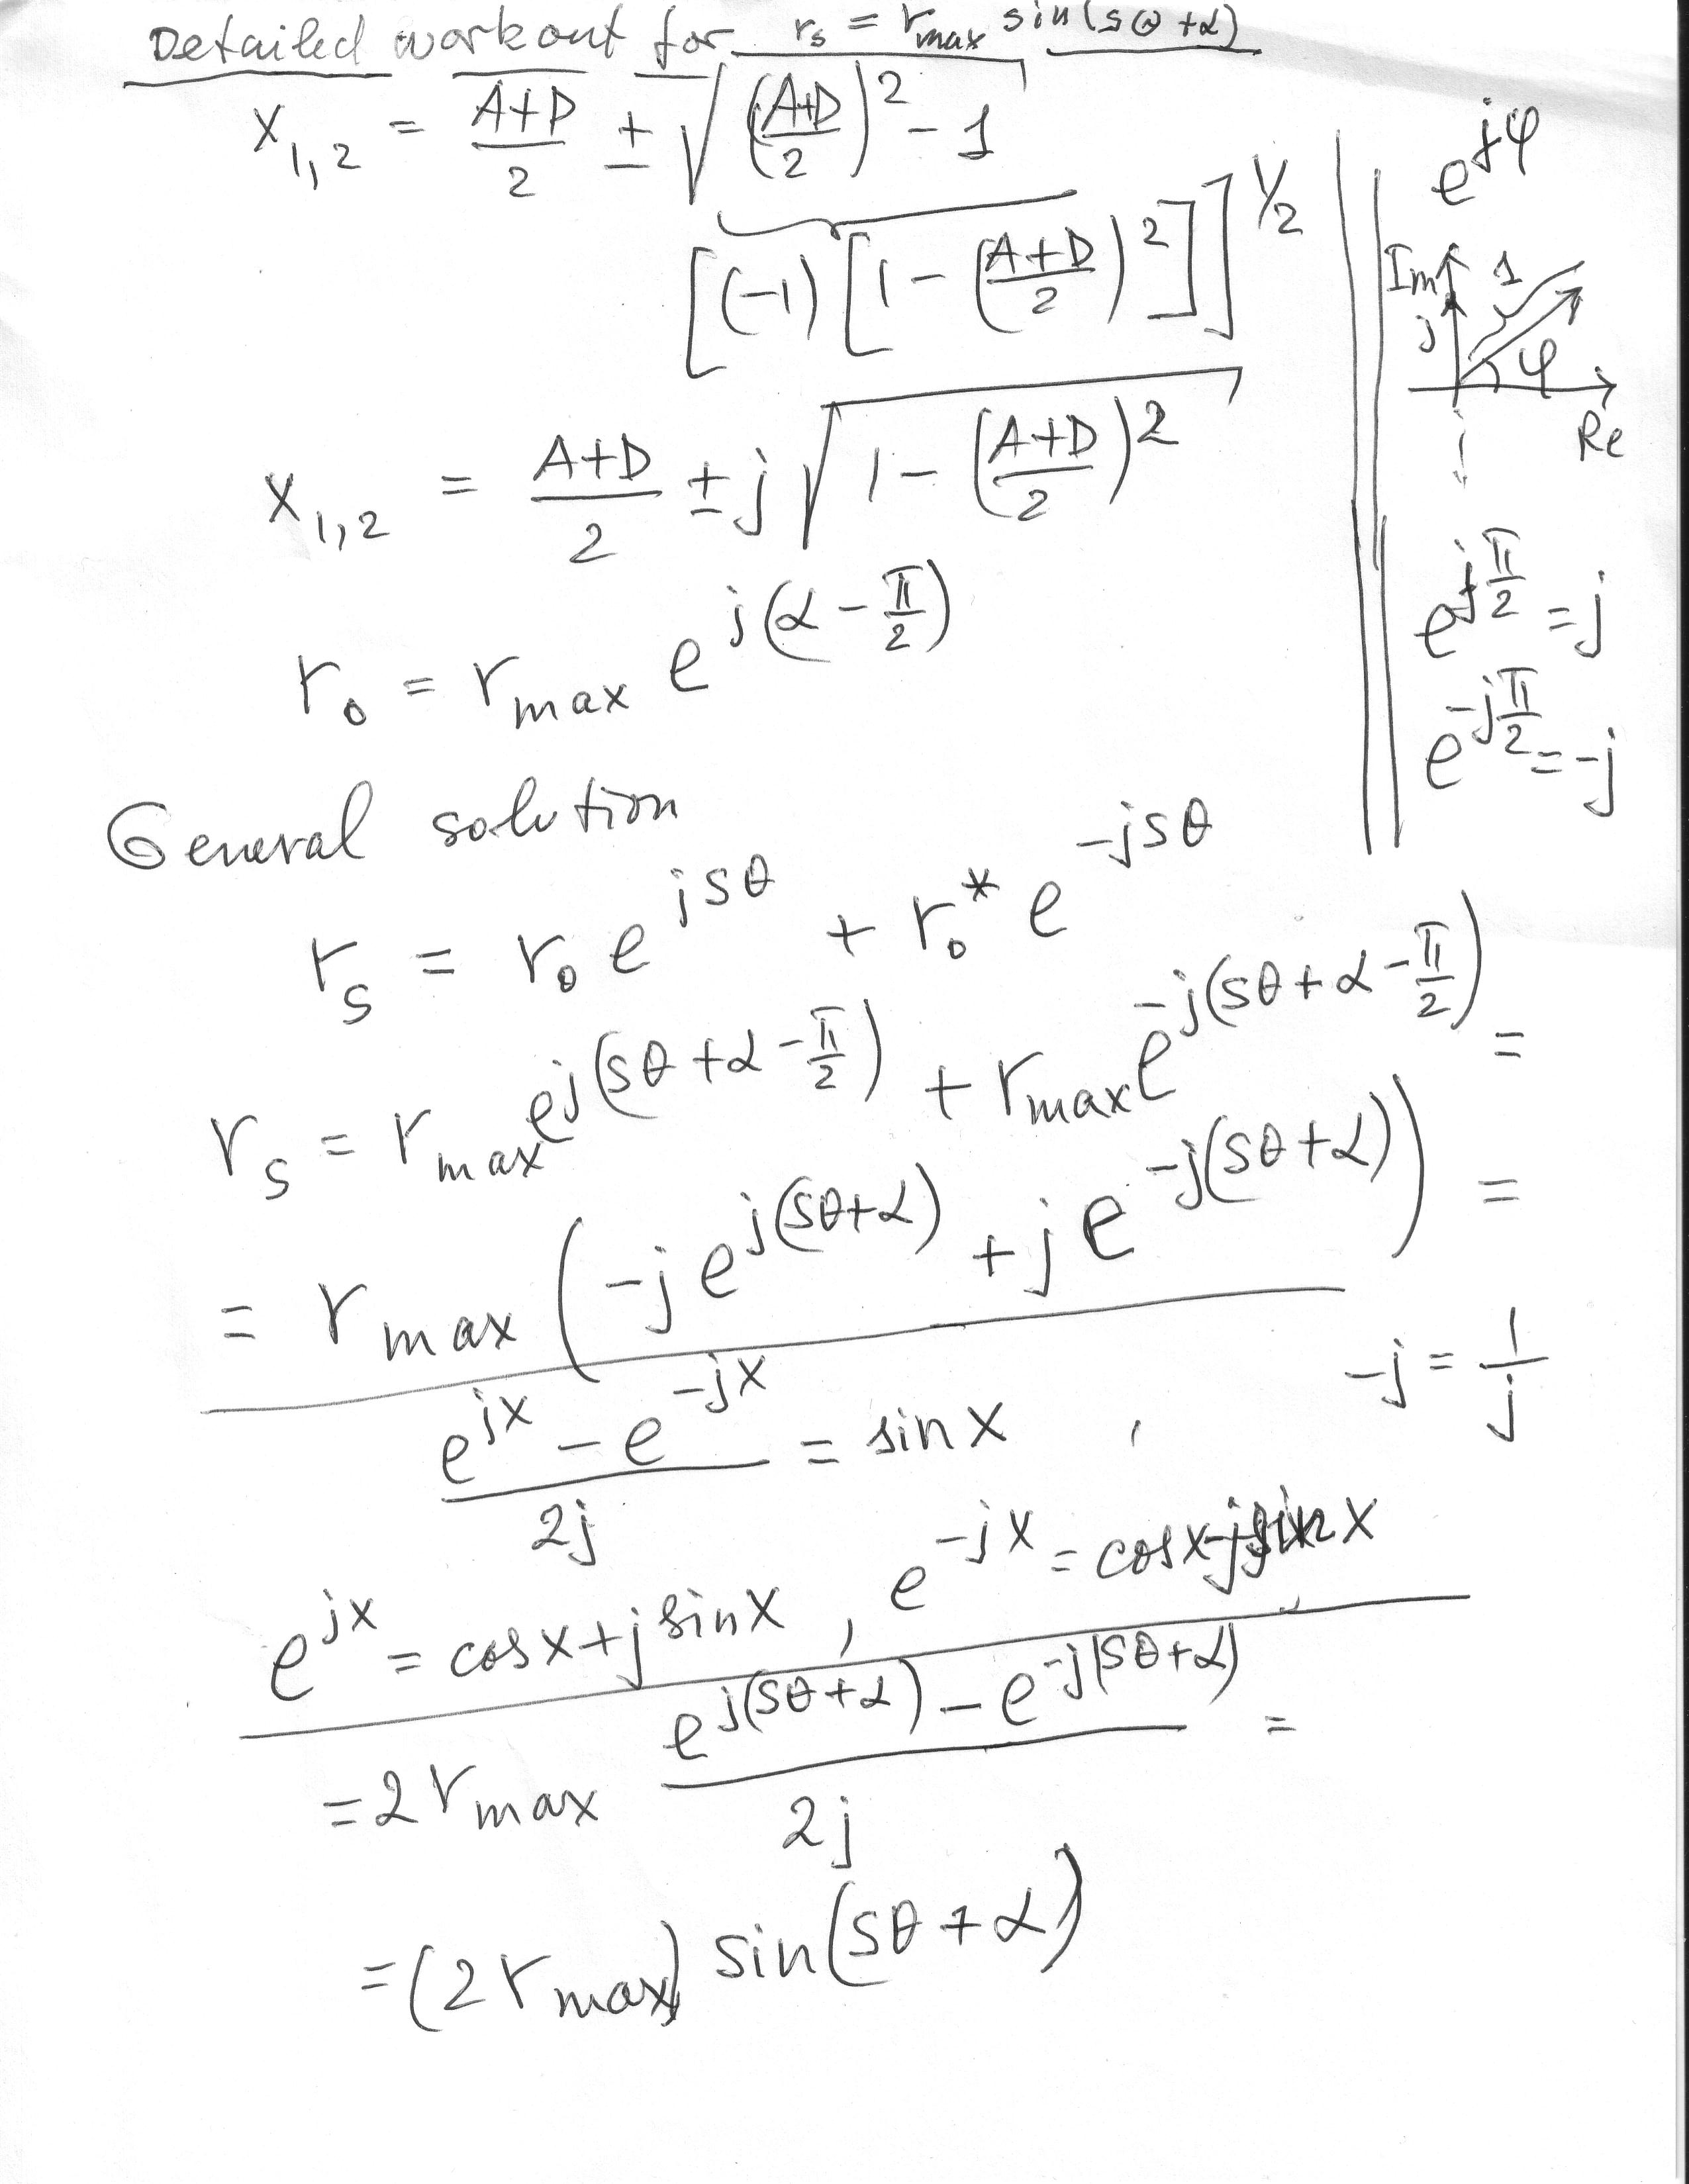 Detailed workout for r_s = r_max sin(sθ + α)
x_{1,2} = (A+D)/2 ± √(((A+D)/2)^2 - 1)
[(-1)[1 - ((A+D)/2)^2]]^{1/2}
x_{1,2} = (A+D)/2 ± j√(1 - ((A+D)/2)^2)
r_0 = r_max e^{j(α - π/2)}
General solution
r_s = r_0 e^{jsθ} + r_0^* e^{-jsθ}
r_s = r_max e^{j(sθ + α - π/2)} + r_max e^{-j(sθ + α - π/2)} =
= r_max (-j e^{j(sθ+α)} + j e^{-j(sθ+α)}) =
(e^{jx} - e^{-jx})/2j = sin x , -j = 1/j
e^{jx} = cos x + j sin x , e^{-jx} = cos x - j sin x
= 2 r_max (e^{j(sθ+α)} - e^{-j(sθ+α)})/2j =
= (2 r_max) sin(sθ + α)
e^{jφ}
Im 1
j φ
Re
e^{jπ/2} = j
e^{-jπ/2} = -j